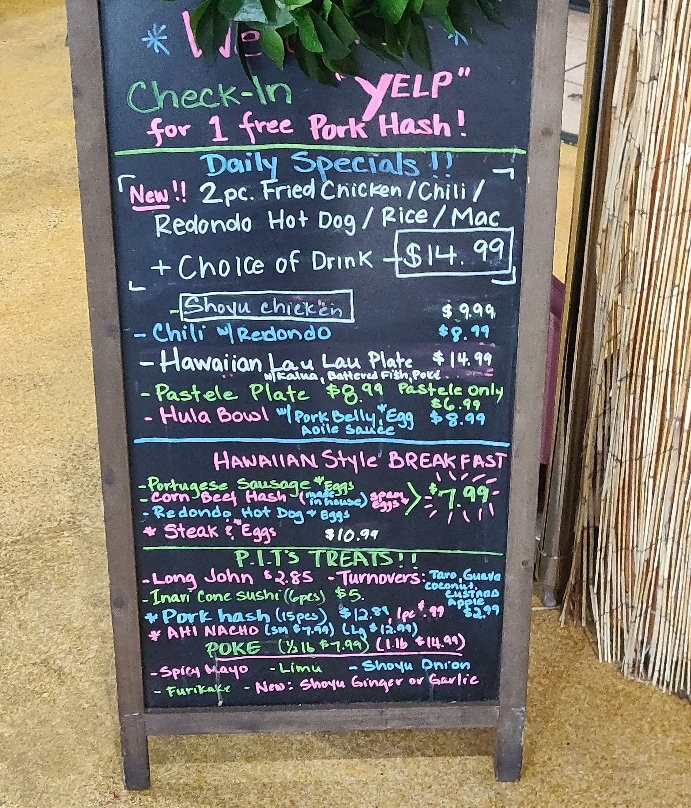 We
Check-In "YELP"
for 1 free Pork Hash!
Daily Specials!!
New!! 2pc. Fried Chicken/Chili/
Redondo Hot Dog/Rice/Mac
+ Choice of Drink - $14.99
- Shoyu chicken $9.99
- Chili w/ Redondo $8.99
- Hawaiian Lau Lau Plate $14.99
w/ Kalua, Battered Fish, Poke
- Pastele Plate $8.99 Pastele only
$6.99
- Hula Bowl w/ Pork Belly, Egg $8.99
Aoile Sauce
HAWAIIAN Style BREAKFAST
- Portugese Sausage + Eggs
- Corn Beef Hash (made in house) spam eggs > $7.99
- Redondo Hot Dog + Eggs
* Steak & Eggs $10.99
P.I.T'S TREATS!!
- Long John $2.85 - Turnovers: Taro, Guava
coconut,
custard
Apple
$2.99
- Inari Cone Sushi (6pcs) $5.
* Pork hash (15pcs) $12.89, 1pc $.99
* AHI NACHO (sm $7.99) (Lg $12.99)
POKE (1/2 lb $7.99) (1 lb $14.99)
- Spicy Mayo - Limu - Shoyu Onion
- Furikake - New: Shoyu Ginger or Garlic